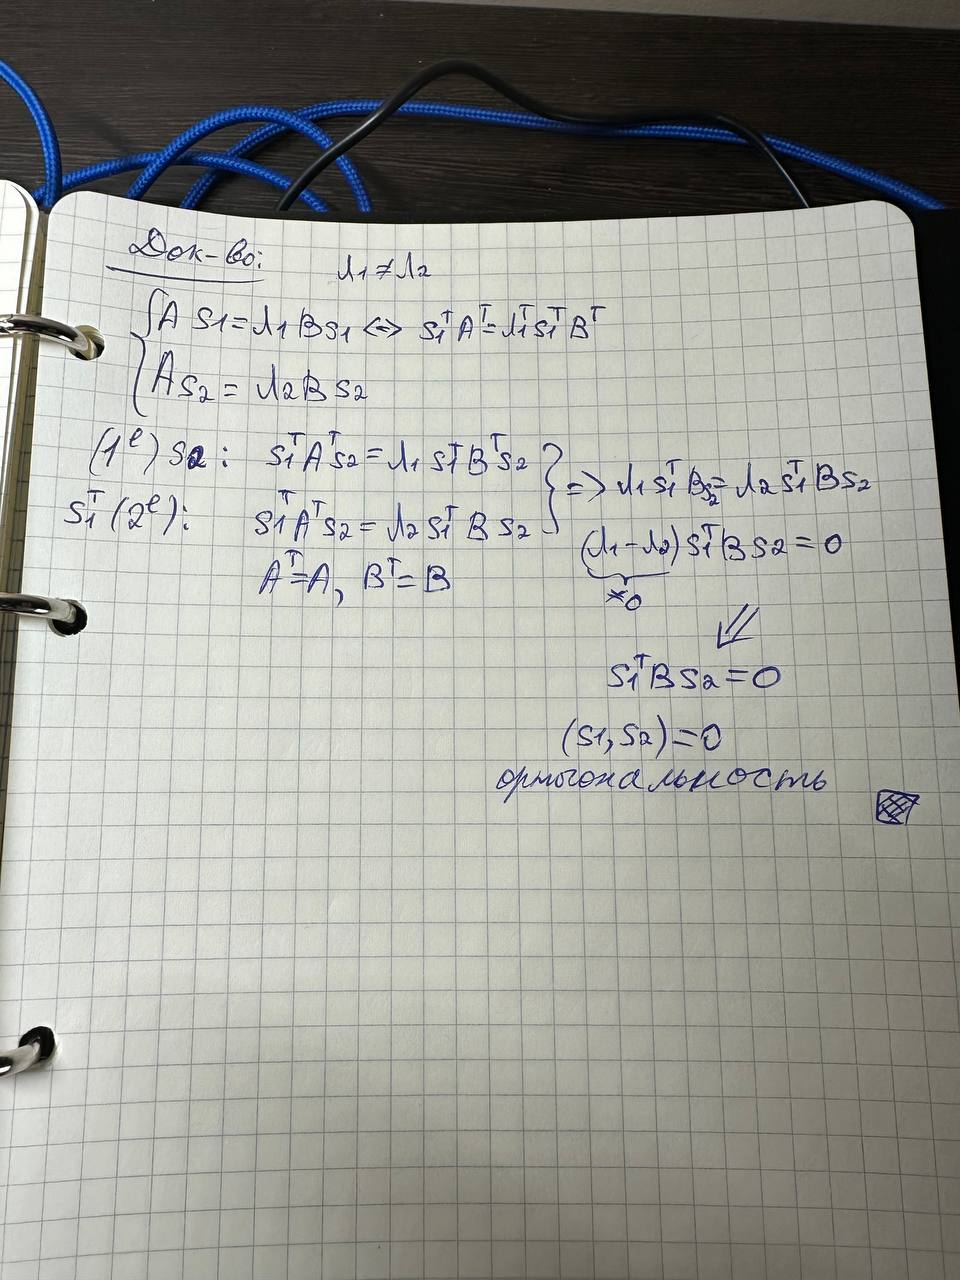 Док-во: λ1 ≠ λ2
{ A s1 = λ1 B s1 <=> s1^T A^T = λ1^T s1^T B^T
A s2 = λ2 B s2
(1^е) s2 : s1^T A^T s2 = λ1 s1^T B^T s2 } => λ1 s1^T B s2 = λ2 s1^T B s2
s1^T (2^е): s1^T A^T s2 = λ2 s1^T B s2
(λ1 - λ2) s1^T B s2 = 0
A^T = A, B^T = B
≠0
⇙
s1^T B s2 = 0
(s1, s2) = 0
ортогональность